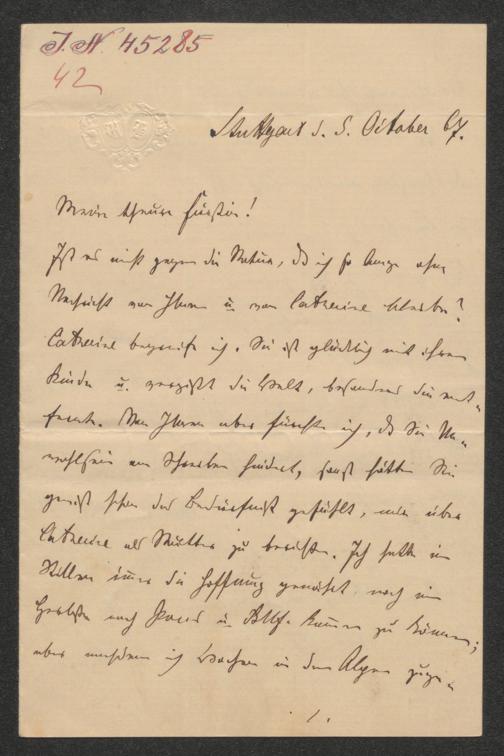 J. N. 45285
42
Stuttgart d. 5. October 67.
Meine theure Fürstin!
Ist es nicht gegen die Natur, dß ich so lange ohne
Nachricht von Ihnen u. von Catherine bleibe?
Catherine begreife ich. Sie ist glücklich mit ihrem
Kinde u. vergißt die Welt, besonders die ent-
fernte. Von Ihnen aber fürchte ich, dß Sie Un-
wohlsein am Schreiben hindert, sonst hätten Sie
gewiß schon das Bedürfniß gefühlt, mir über
Catherine als Mutter zu berichten. Ich hatte im
Stillen immer die Hoffnung genährt noch im
Herbste nach u. kommen zu können;
aber nachdem ich Wochen in den Alpen zuge-
./.